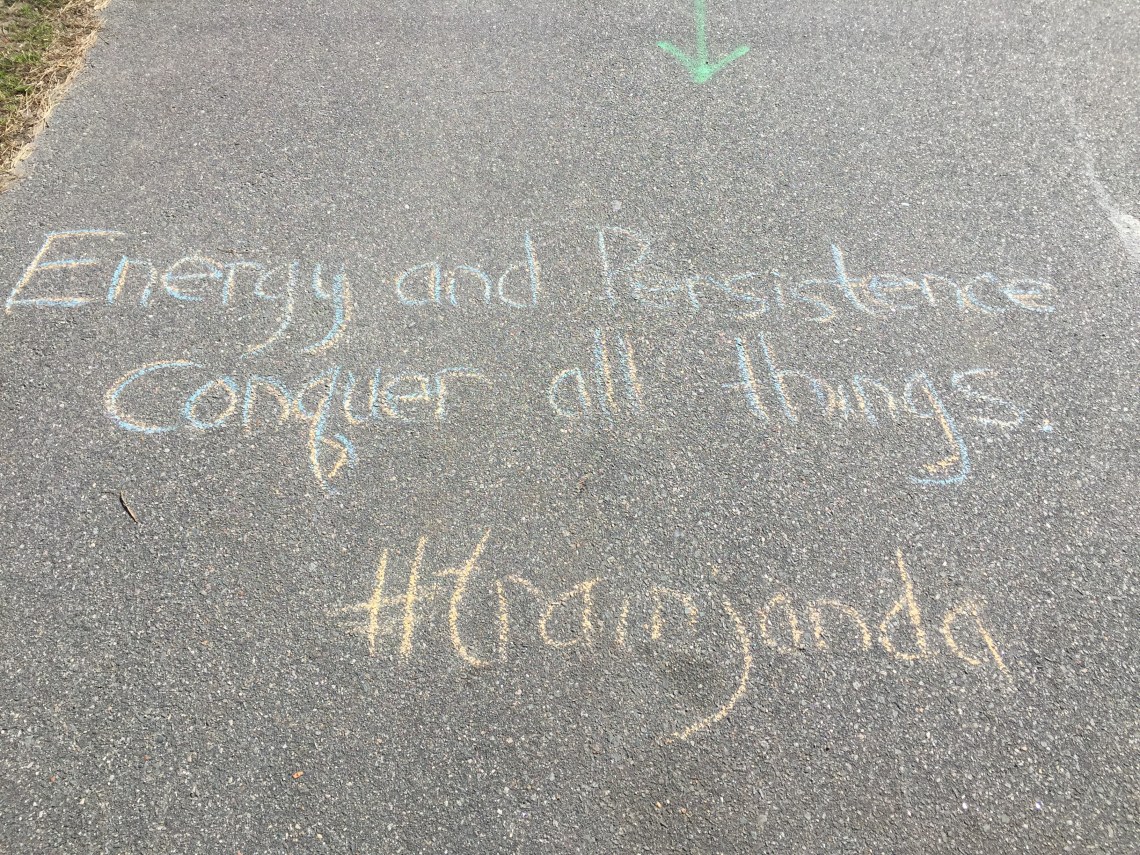 Energy and Persistence
Conquer all things.
#trainjanda